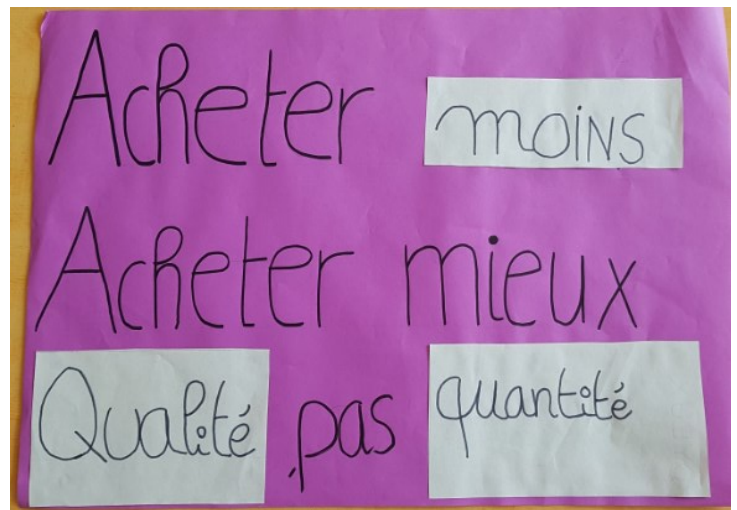 Acheter moins
Acheter mieux
Qualité pas quantité